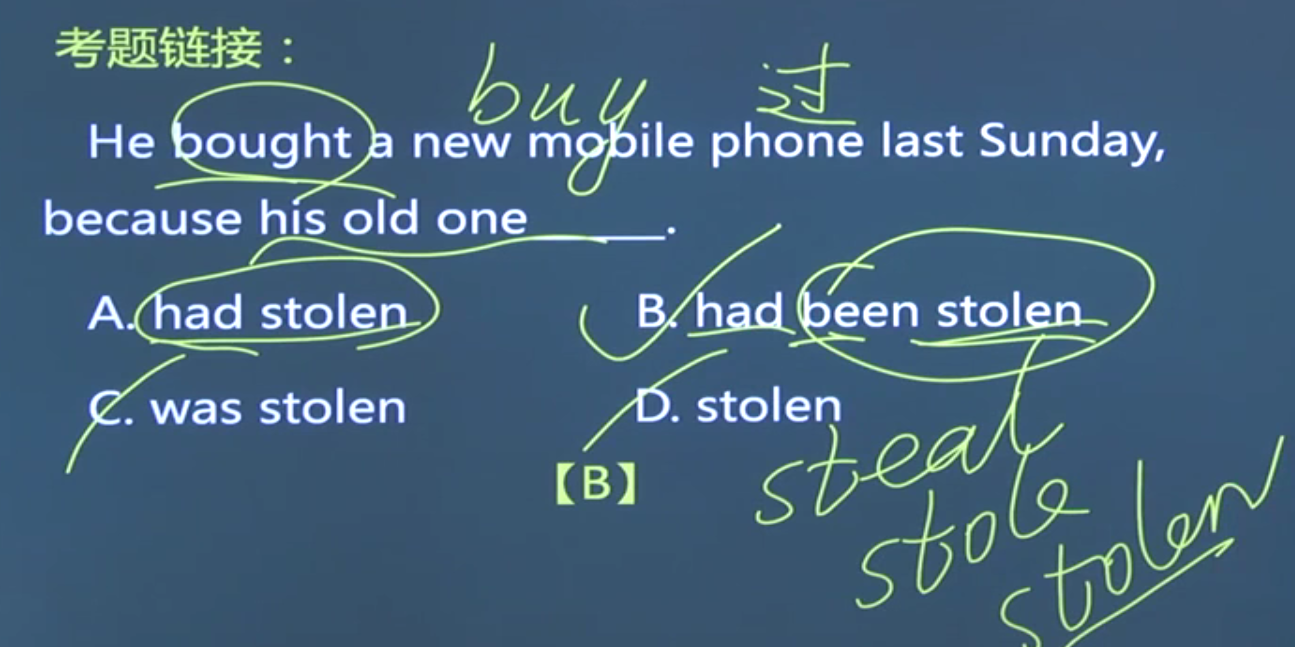 考题链接：
buy 过
He bought a new mobile phone last Sunday,
because his old one ______.
A. had stolen B. had been stolen
C. was stolen D. stolen
【B】
steal
stole
stolen